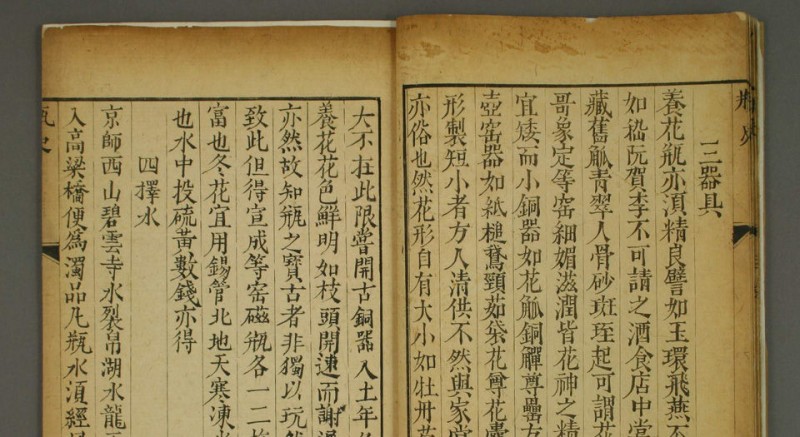 瓶史
三器具
養花瓶亦湏精良譬如玉環飛燕不
如嵇阮賀李不可請之酒食店中甞
藏舊觚青翠入骨砂斑垤起可謂花
哥象定等窑細媚滋潤皆花神之精
宜矮而小銅器如花觚銅觶尊罍方
壺窑器如紙槌鵞頸茹袋花尊花囊
形製短小者方入清供不然與家堂
亦俗也然花形自有大小如牡丹
大不在此限嘗開古銅器入土年
養花花色鮮明如枝頭開速而謝遲
亦然故知瓶之寶古者非獨以玩
致此但得宣成等窑磁瓶各一二枚
富也冬花宜用錫管北地天寒凍
也水中投硫黃數錢亦得
四擇水
京師西山碧雲寺水裂帛湖水龍王
入高梁橋便為濁品凡瓶水湏經
瓶史